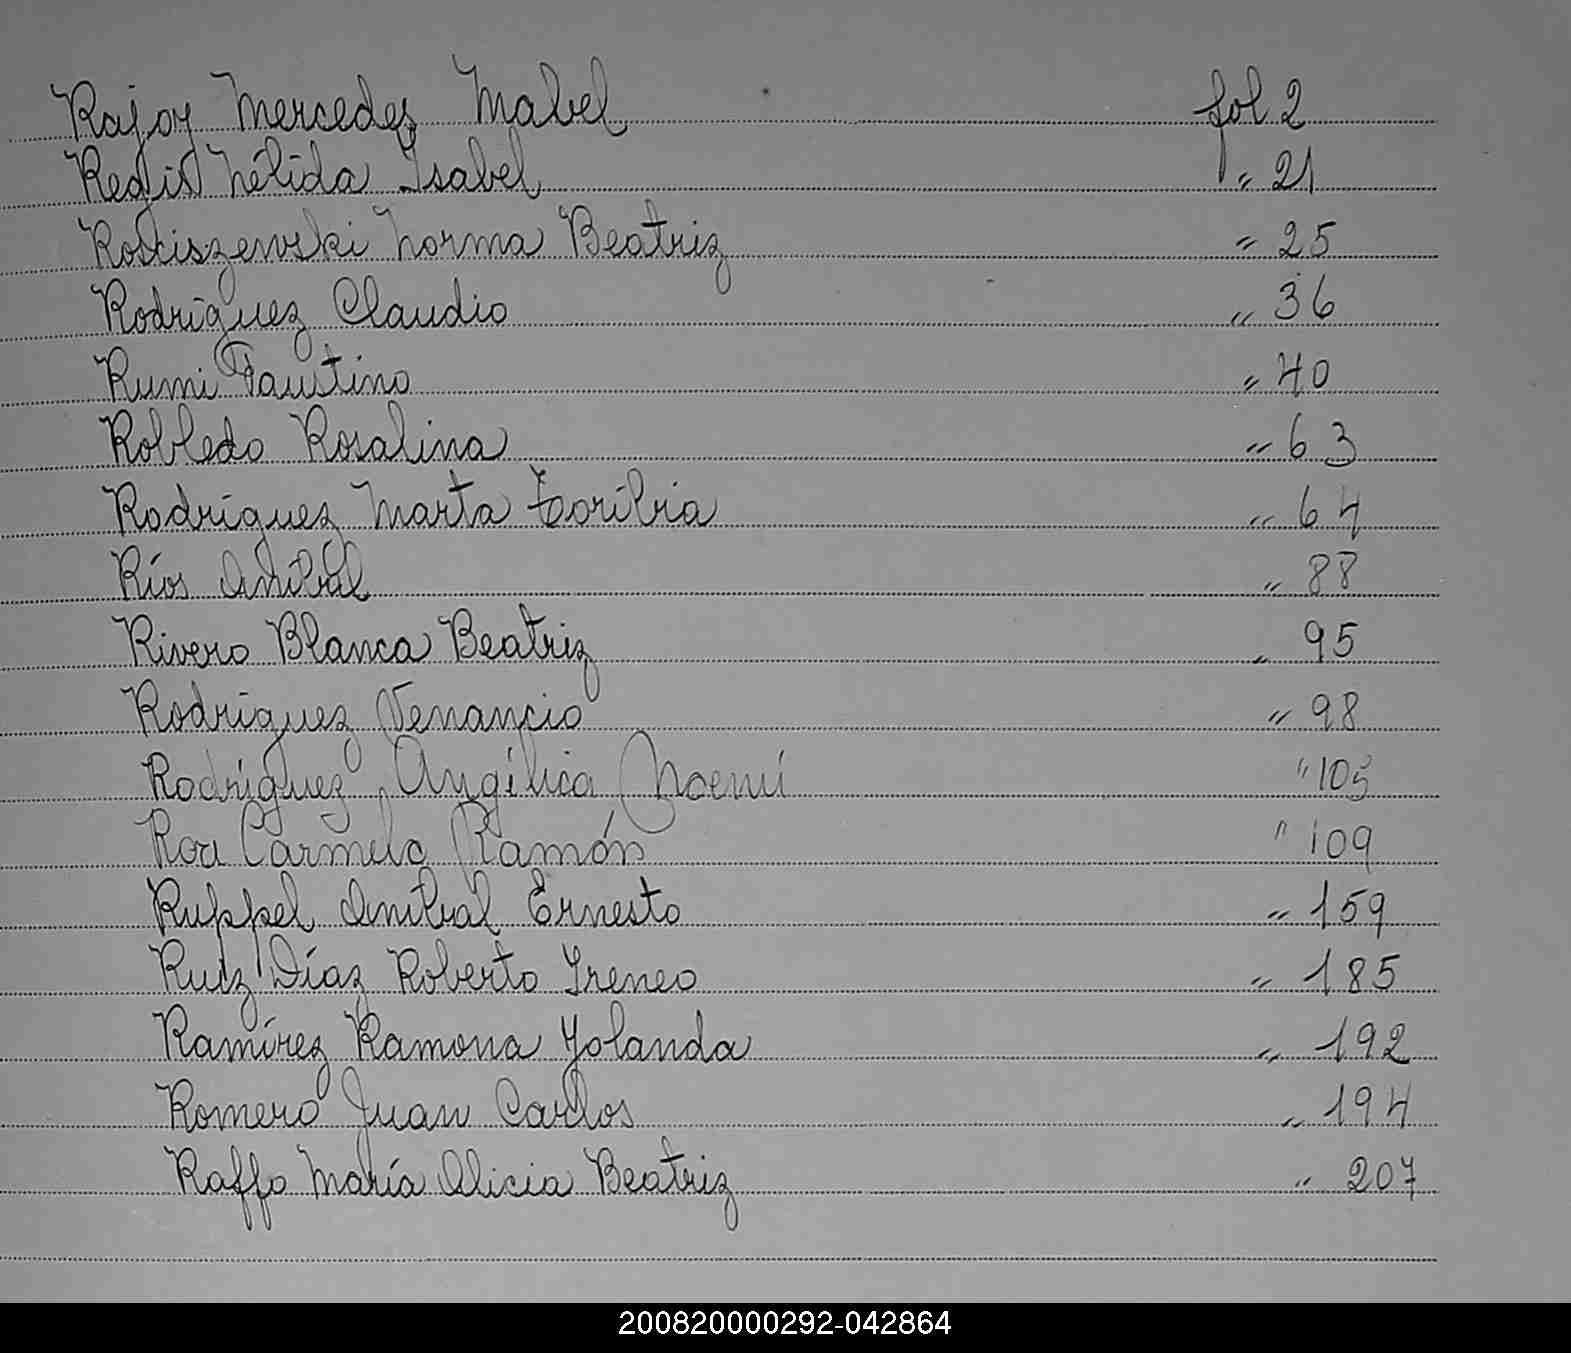 Rajoy Mercedes Mabel fol 2
Regis Nélida Isabel " 21
Rosciszewski Norma Beatriz " 25
Rodríguez Claudio " 36
Rumi Faustino " 40
Robledo Rosalina " 63
Rodríguez Marta Toribia " 64
Ríos Aníbal " 88
Rivero Blanca Beatriz " 95
Rodríguez Venancio " 98
Rodríguez, Angélica Noemí " 105
Roa Carmelo Ramón " 109
Ruppel Aníbal Ernesto " 159
Ruiz Díaz Roberto Ireneo " 185
Ramírez Ramona Yolanda " 192
Romero Juan Carlos " 194
Raffo María Alicia Beatriz " 207
200820000292-042864